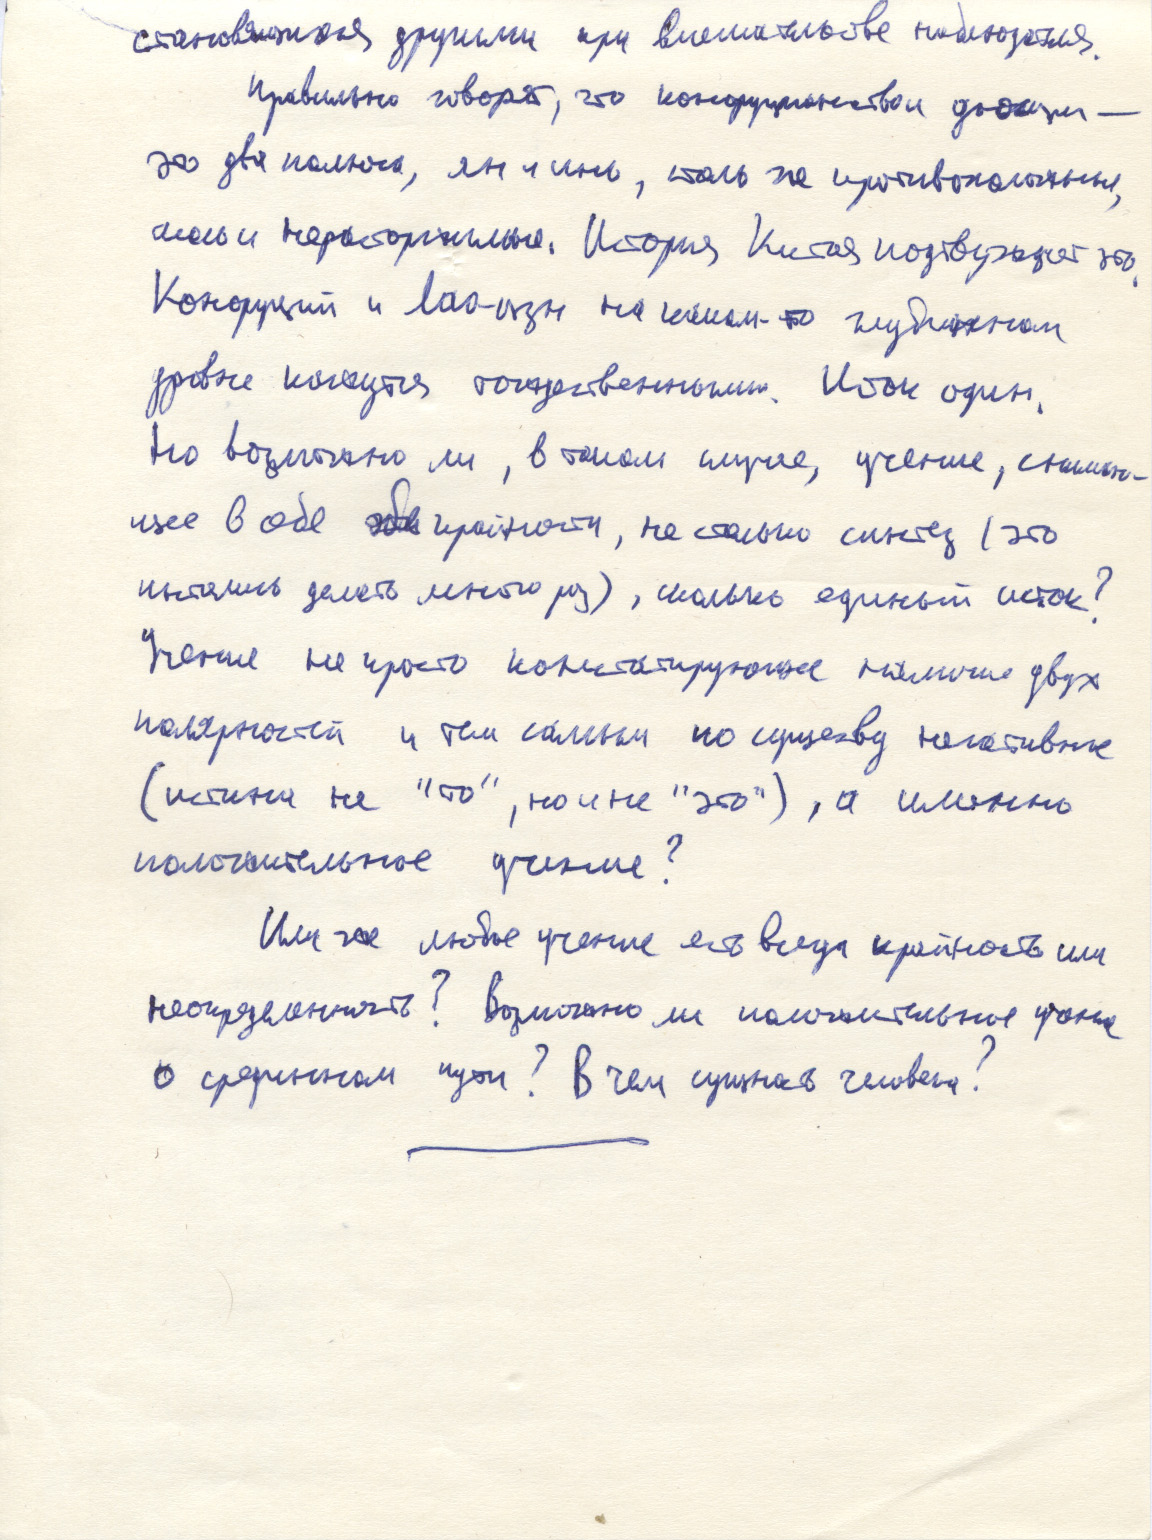 становящихся другими при вмешательстве наблюдателя.
Правильно говорят, что конфуцианство и даосизм —
это два полюса, ян и инь, столь же противоположные,
сколь и нерасторжимые. История Китая подтверждает это.
Конфуций и Лао-цзы на каком-то глубинном
уровне кажутся тождественными. Исток один.
Но возможно ли, в таком случае, учение, снимаю-
щее в себе обе крайности, не столько синтез (это
пытались делать много раз), сколько единый исток?
Учение не просто констатирующее наличие двух
полярностей и тем самым по существу негативное
(истина не "то", но и не "это"), а именно
положительное учение?
Или же любое учение есть всегда крайность или
неопределенность? Возможно ли положительное учение
о срединном пути? В чем сущность человека?